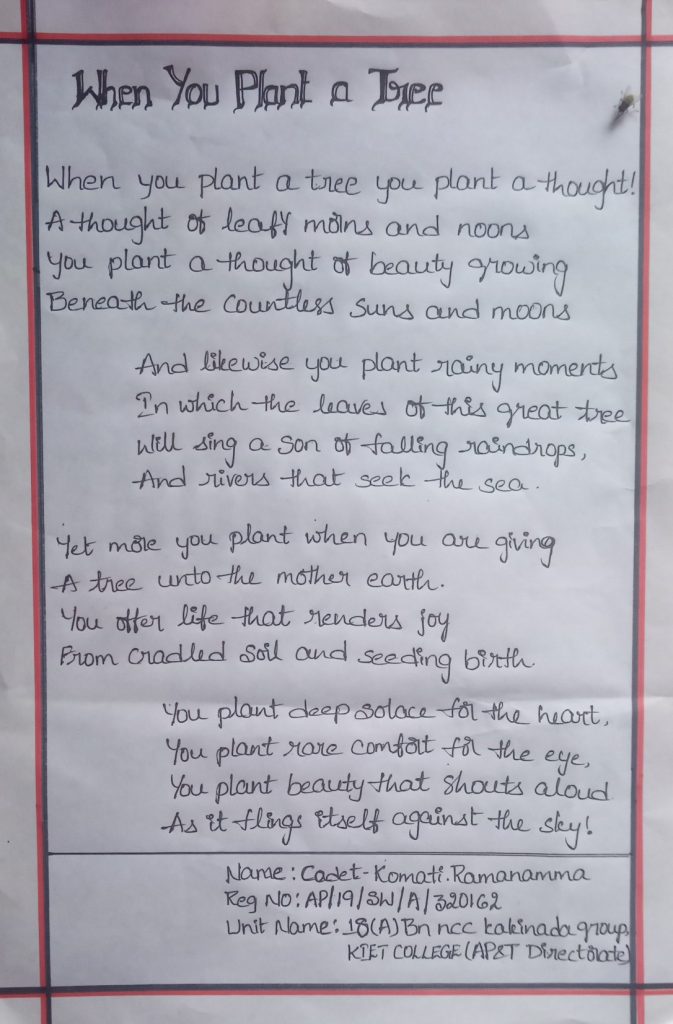 When You Plant a Tree
When you plant a tree you plant a thought!
A thought of leafy morns and noons
You plant a thought of beauty growing
Beneath the countless suns and moons
And likewise you plant rainy moments
In which the leaves of this great tree
Will sing a son of falling raindrops,
And rivers that seek the sea.
Yet more you plant when you are giving
A tree unto the mother earth.
You offer life that renders joy
From cradled soil and seeding birth.
You plant deep solace for the heart,
You plant rare comfort for the eye,
You plant beauty that shouts aloud
As it flings itself against the sky!
Name: Cadet-Komati.Ramanamma
Reg No: AP/19/SW/A/320162
Unit Name: 18(A)Bn ncc kakinada group,
KIET COLLEGE (AP&T Directorate)